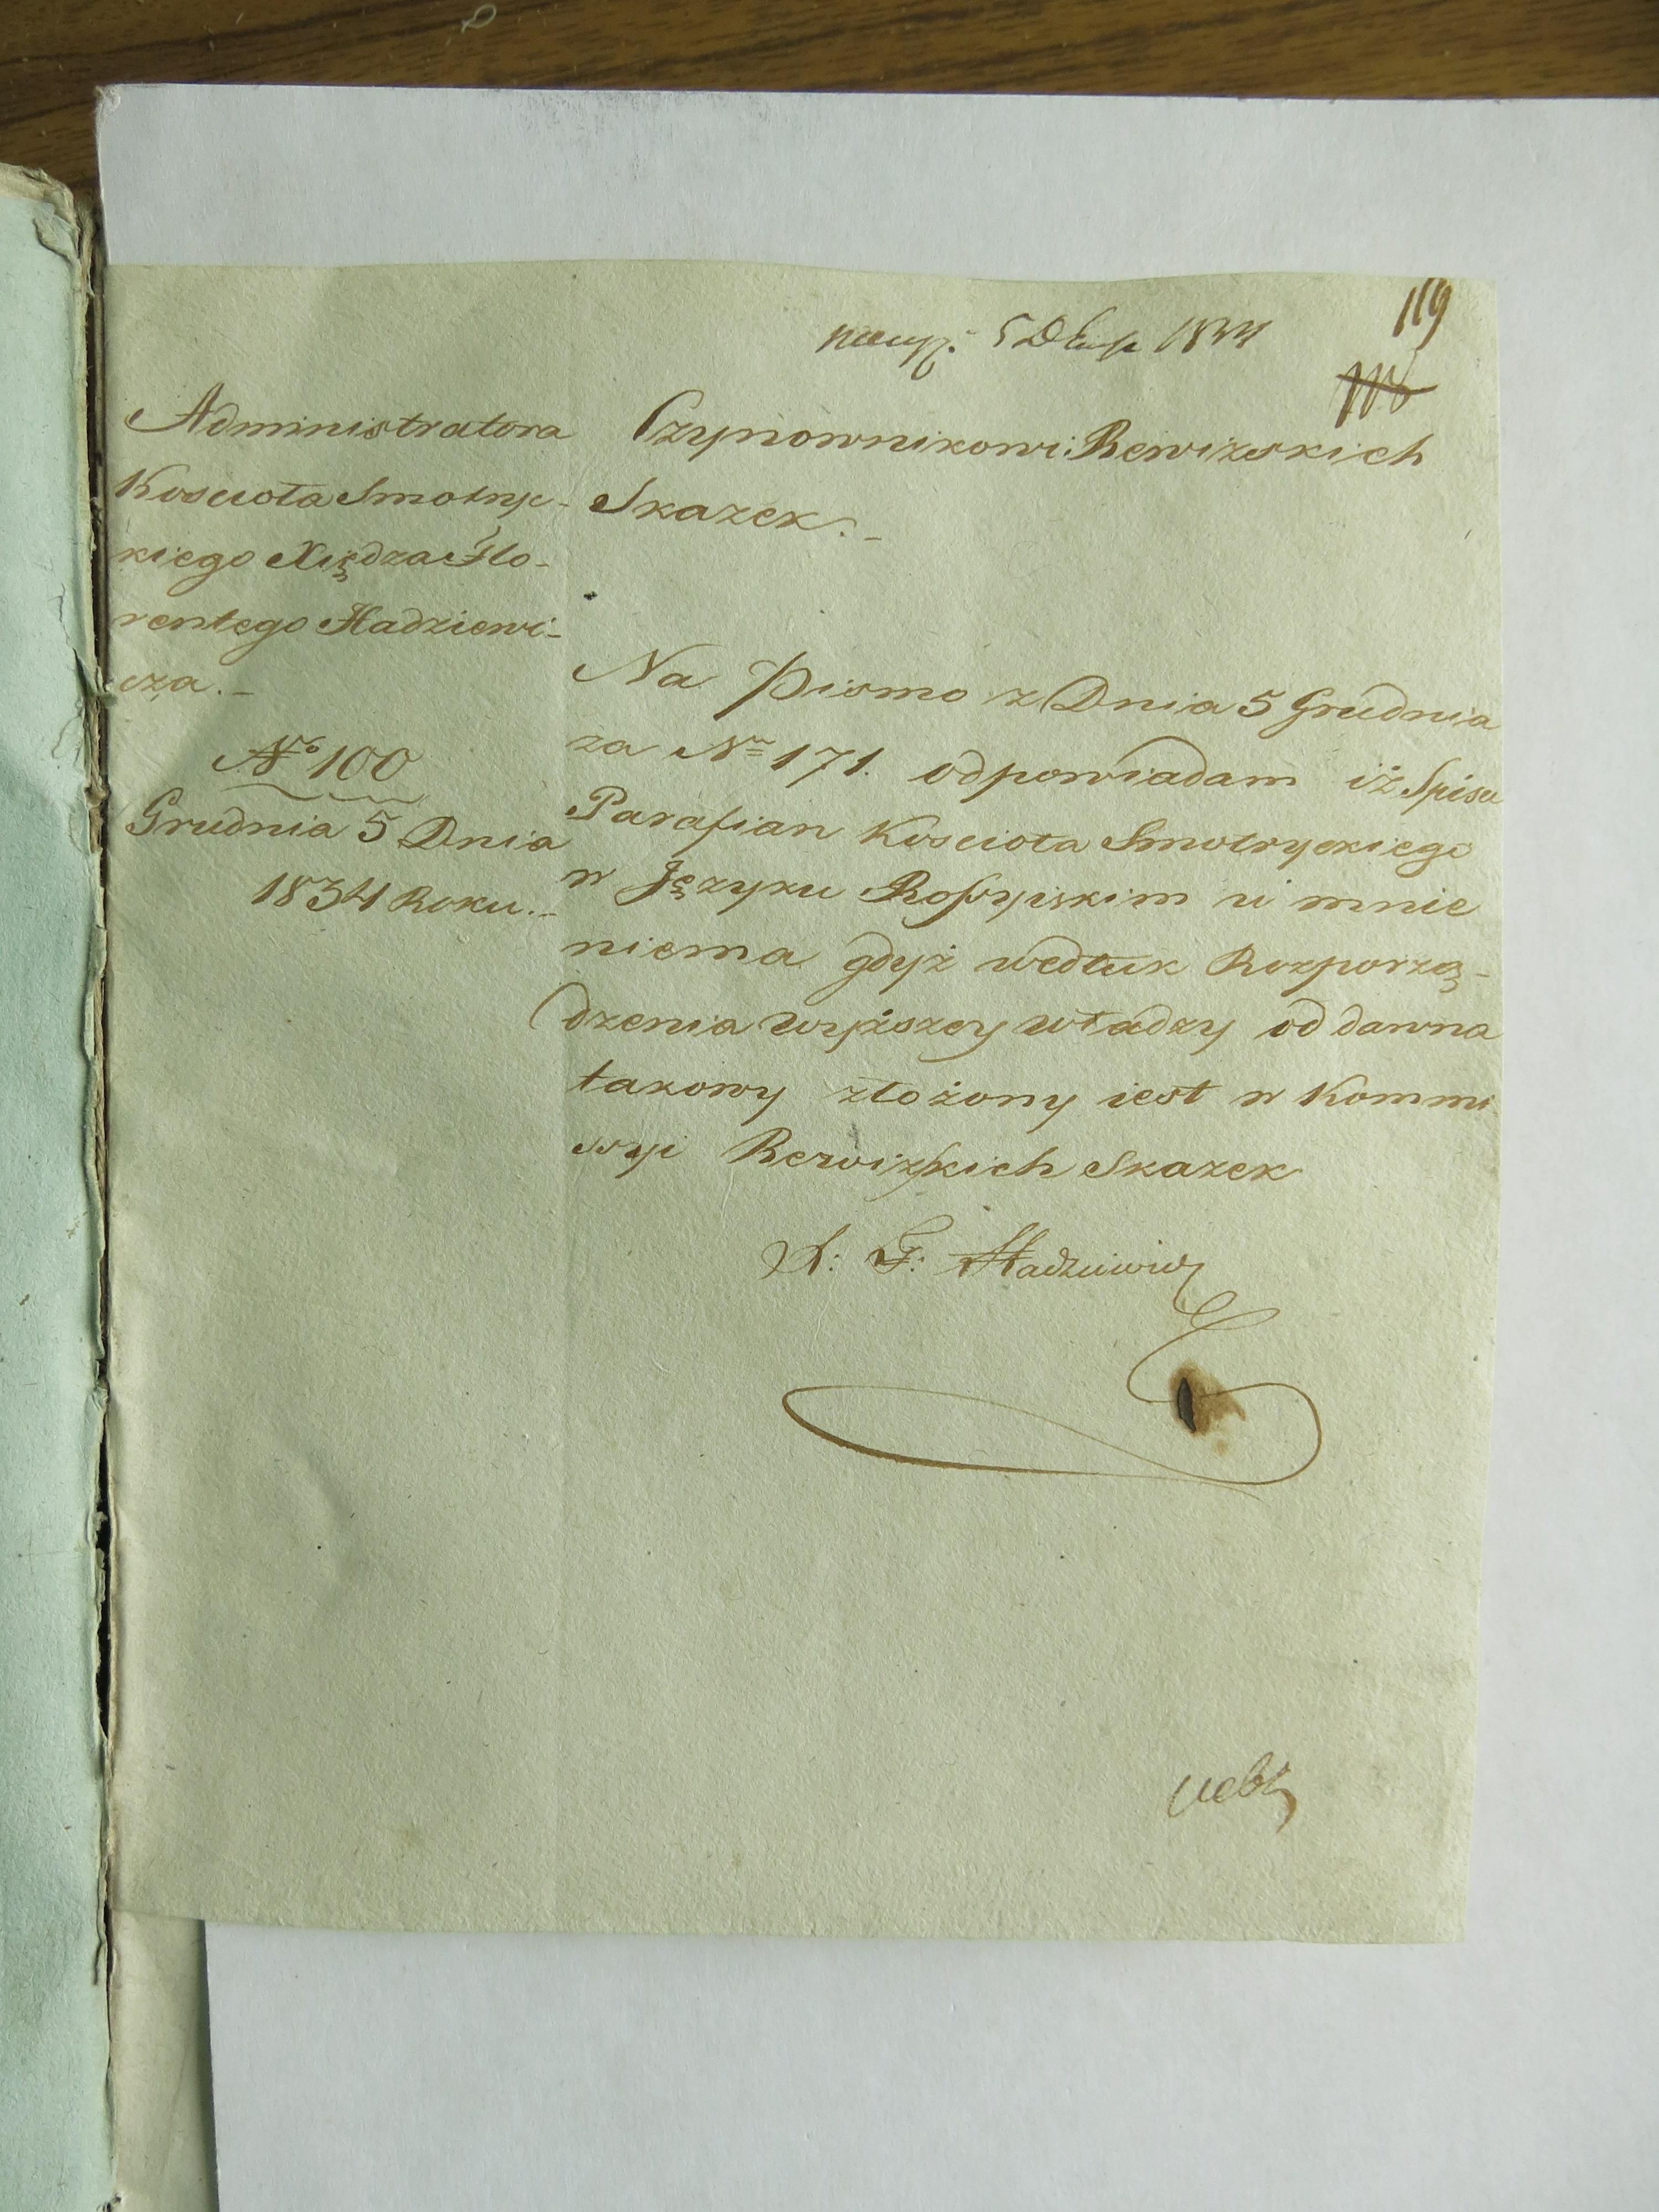 119
5 Декабр 1834
Administratora
Koscioła Smotryc-
kiego Xiędza Flo-
rentego Hadziewi-
cza.-
No 100
Grudnia 5 Dnia
1834 Roku.-
Czynownikowi Rewizskich
Skazek.-
Na Pismo z Dnia 5 Grudnia
za Nm 171. odpowiadam iż Spisu
Parafian Kosciola Smotryckiego
w Języku Rossyiskim u mnie
niema gdyż wedłuk Rozporzą-
dzenia wyższey władzy od dawna
takowy złożony iest w Kommi
ssyi Rewizskich Skazek
X: F: Hadziewicz